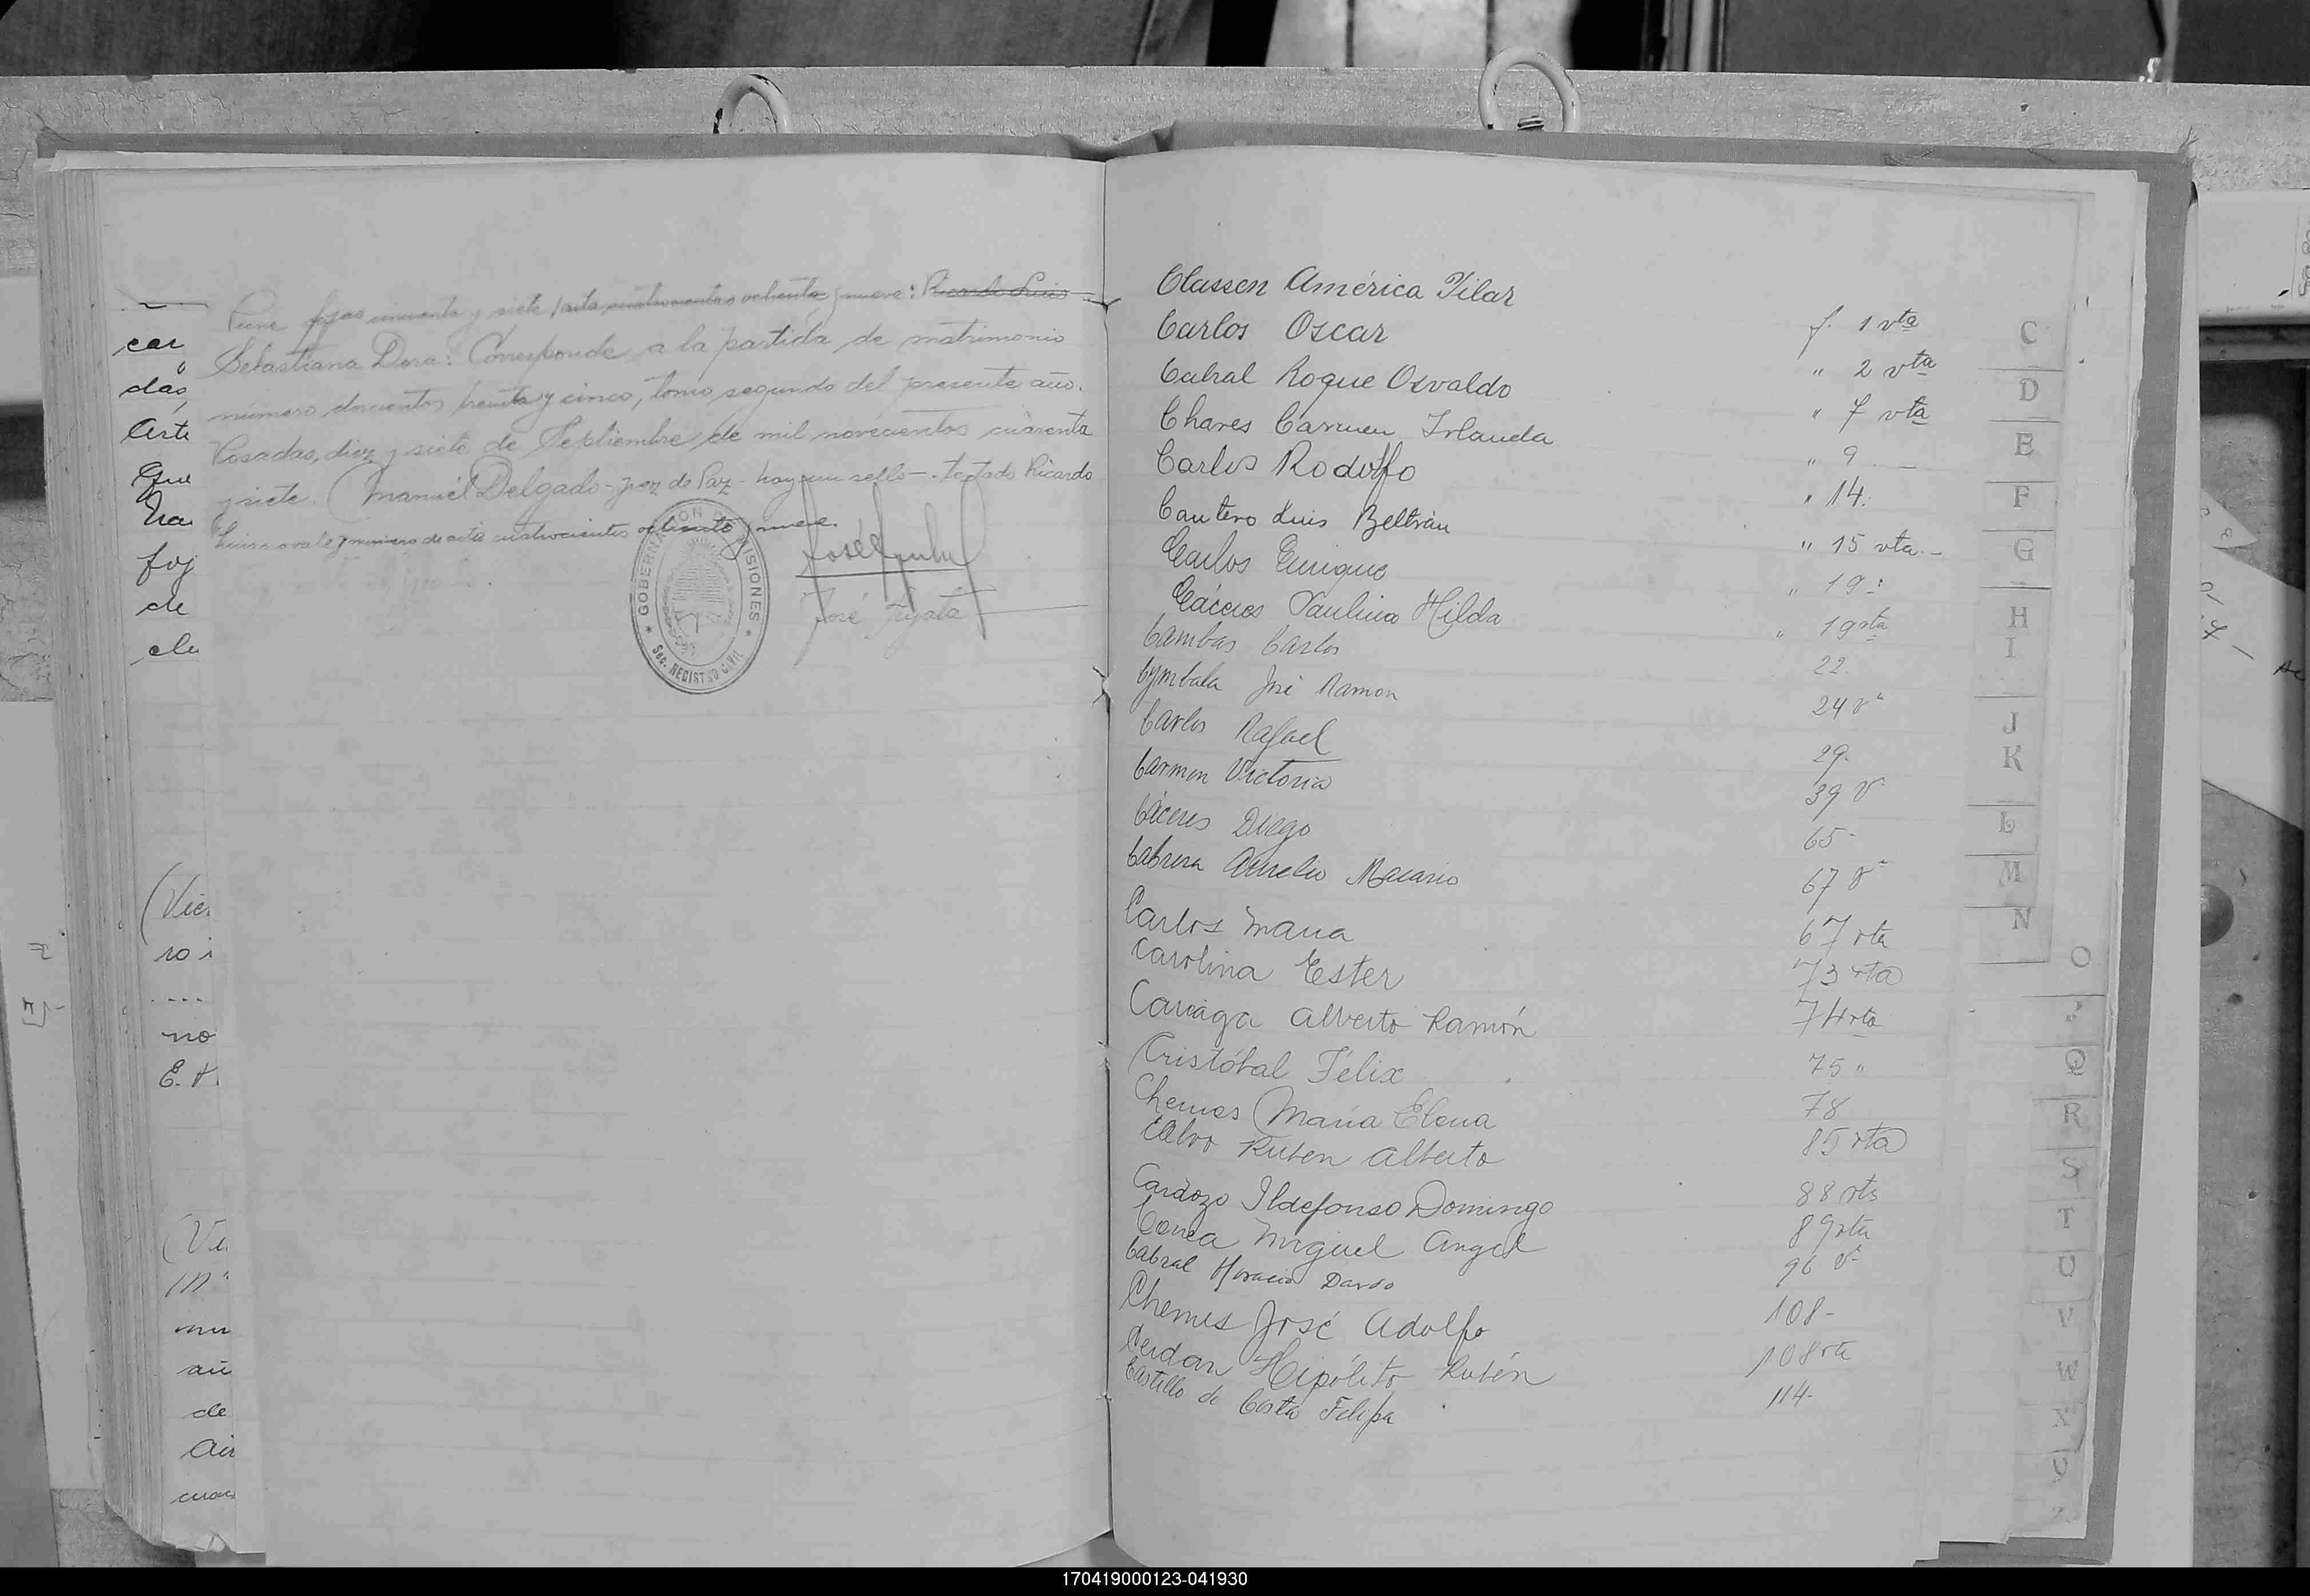 car
das,
Arti
Que
foj
de
Viene fojas cincuenta y siete, acta cuatrocientos ochenta y nueve: Ricardo Luis
Sebastiana Dora: Corresponde a la partida de matrimonio
número doscientos treinta y cinco, tomo segundo del presente año.
Posadas, diez y siete de Septiembre de mil novecientos cuarenta
y siete. (Manuel Delgado - Juez de Paz - hay un sello - testado Ricardo
Luis no vale y número de acta cuatrocientos ochenta y nueve.
GOBERNACION MISIONES
Sec. REGISTRO CIVIL
José
(Vic
ro i
no
E. V.
(Vi
mu
añ
de
Air
Classen América Pilar f. 1 vta
Carlos Oscar " 2 vta
Cabral Roque Osvaldo " 7 vta
Chaves Carmen Irlanda " 9
Carlos Rodolfo " 14.
Cantero Luis Beltrán " 15 vta.-
Carlos Enrique " 19.
Cáceres Paulina Hilda " 19 vta
Cambas Carlos 22.
Cymbala José Ramon 24 vª
Carlos Rafael 29.
Carmen Victoria 39 v.
Cáceres Diego 65-
Cabrera Aurelio Macario 67 vª
Carlos Maria 67 vta
Carolina Ester 73 vta
Cariaga Alberto Ramón 74 vta
Cristóbal Félix 75 "
Chemes María Elena 78
Calvo Ruben Alberto 85 vta
Cardozo Ildefonso Domingo 88 vta
Correa Miguel Angel 89 vta
Cabral Horacio Dardo 96 vª
Chemes José Adolfo 108-
Cerdan Hipólito Rubén 108 vta
Castillo de Costa Felipa 114.
C
D
E
F
G
H
I
J
K
L
M
N
O
P
Q
R
S
T
U
V
W
X
Y
Z
170419000123-041930